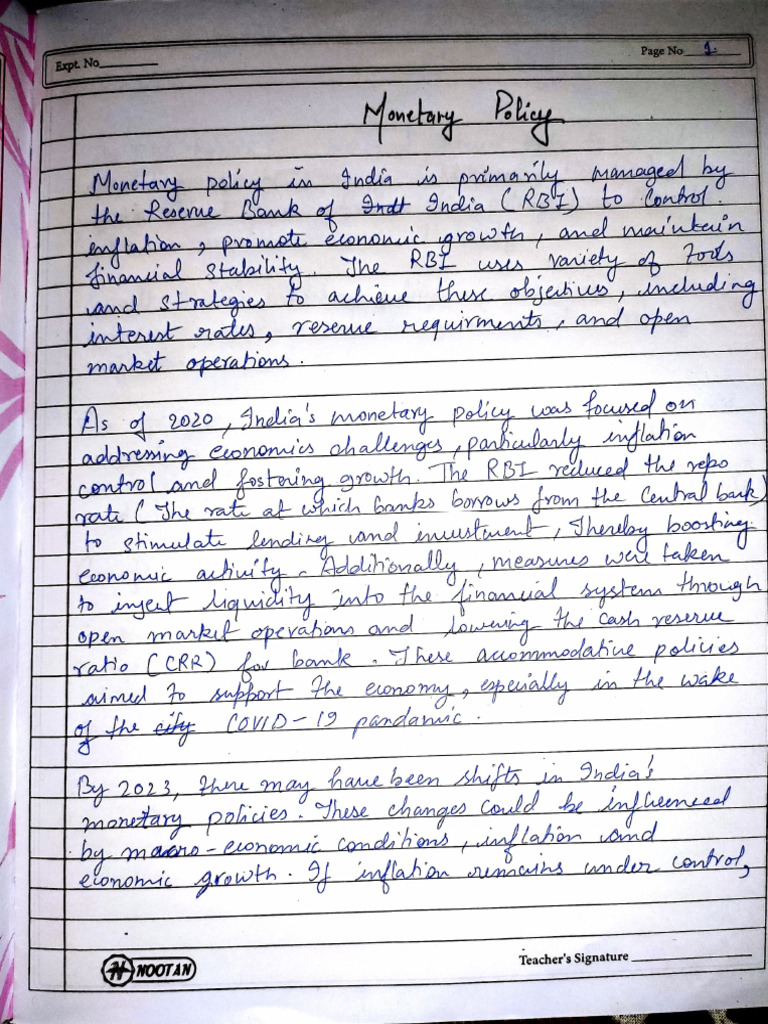 Expt. No
Page No 1.
Monetary Policy
Monetary policy in India is primarily managed by
the Reserve Bank of Indt India (RBI) to control
inflation, promote economic growth, and maintain
financial stability. The RBI uses variety of Tools
and strategies to achieve these objectives, including
interest rates, reserve requirments, and open
market operations.
As of 2020, India's monetary policy was focused on
addressing economics challenges, particularly inflation
control and fostering growth. The RBI reduced the repo
rate (The rate at which banks borrows from the Central bank)
to stimulate lending and investment, Thereby boosting
economic activity. Additionally, measures were taken
to inject liquidity into the financial system through
open market operations and lowering the cash reserve
ratio (CRR) for bank. These accommodative policies
aimed to support the economy, especially in the wake
of the city COVID-19 pandamic.
By 2023, there may have been shifts in India's
monetary policies. These changes could be influenced
by macro-economic conditions, inflation and
economic growth. If inflation remains under control,
NOOTAN
Teacher's Signature